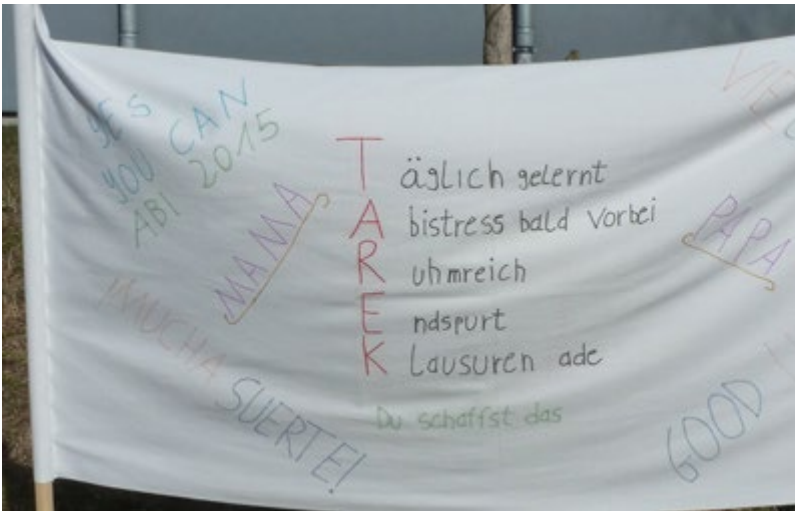 YES
YOU CAN
ABI 2015
MAMA
Täglich gelernt
Abistress bald vorbei
Ruhmreich
Endspurt
Klausuren ade
Du schaffst das
¡MUCHA SUERTE!
PAPA
GOOD